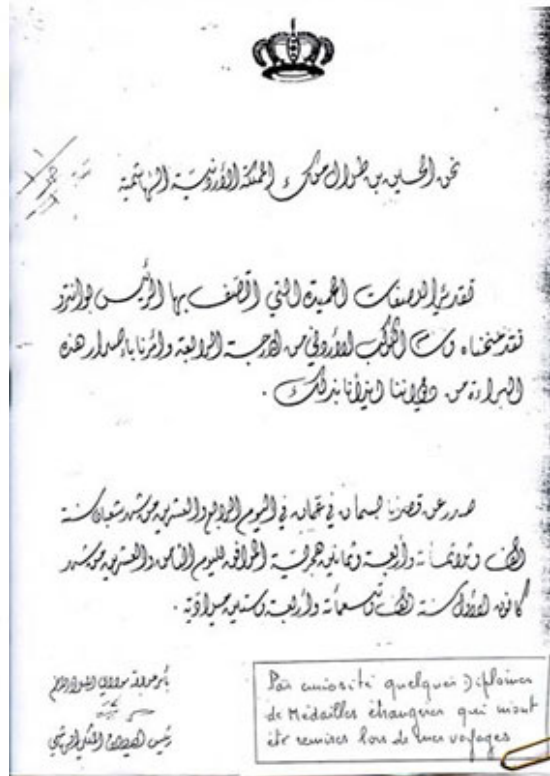 نحن الحسين بن طلال ملك المملكة الأردنية الهاشمية
تقديرا للصفات الحميدة التي اتصف بها الرئيس بواترو
فقد منحناه وسام الكوكب الأردني من الدرجة الرابعة وأمرنا بإصدار هذه
البراءة من ديواننا إيذانا بذلك .
صدر عن قصرنا بسمان في عمان في اليوم الرابع والعشرين من شهر شعبان سنة
ألف وثلاثمائة وأربعة وثمانين هجرية الموافق لليوم الثامن والعشرين من شهر
كانون الأول سنة ألف وتسعمائة وأربعة وستين ميلادية .
بأمر جلالة مولاي الملك المعظم
رئيس الديوان الملكي الهاشمي
Par curiosité quelques Diplomes
de Médailles étrangeres qui m'ont
été remises lors de mes voyages